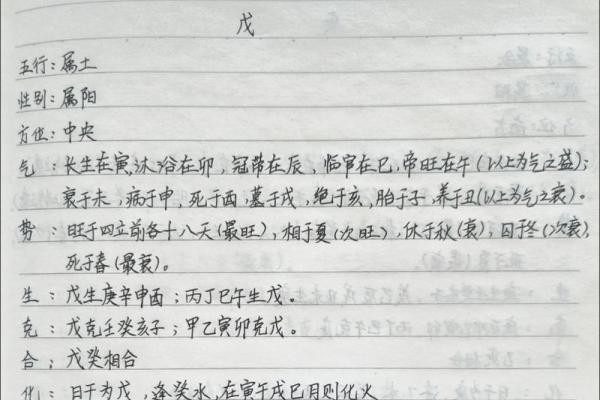 戊
五行：属土
性别：属阳
方位：中央
气：长生在寅，沐浴在卯，冠带在辰，临官在巳，帝旺在午（以上为气之盛）；
衰于未，病于申，死于酉，墓于戌，绝于亥，胎于子，养于丑（以上为气之衰）。
势：旺于四立前各十八天（最旺），相于夏（次旺），休于秋（衰），囚于冬（次衰），
死于春（最衰）。
生：戊生庚辛申酉；丙丁巳午生戊。
克：戊克壬癸亥子；甲乙寅卯克戊。
合：戊癸相合
化：日干为戊，逢癸水，在寅午戌巳月则化火